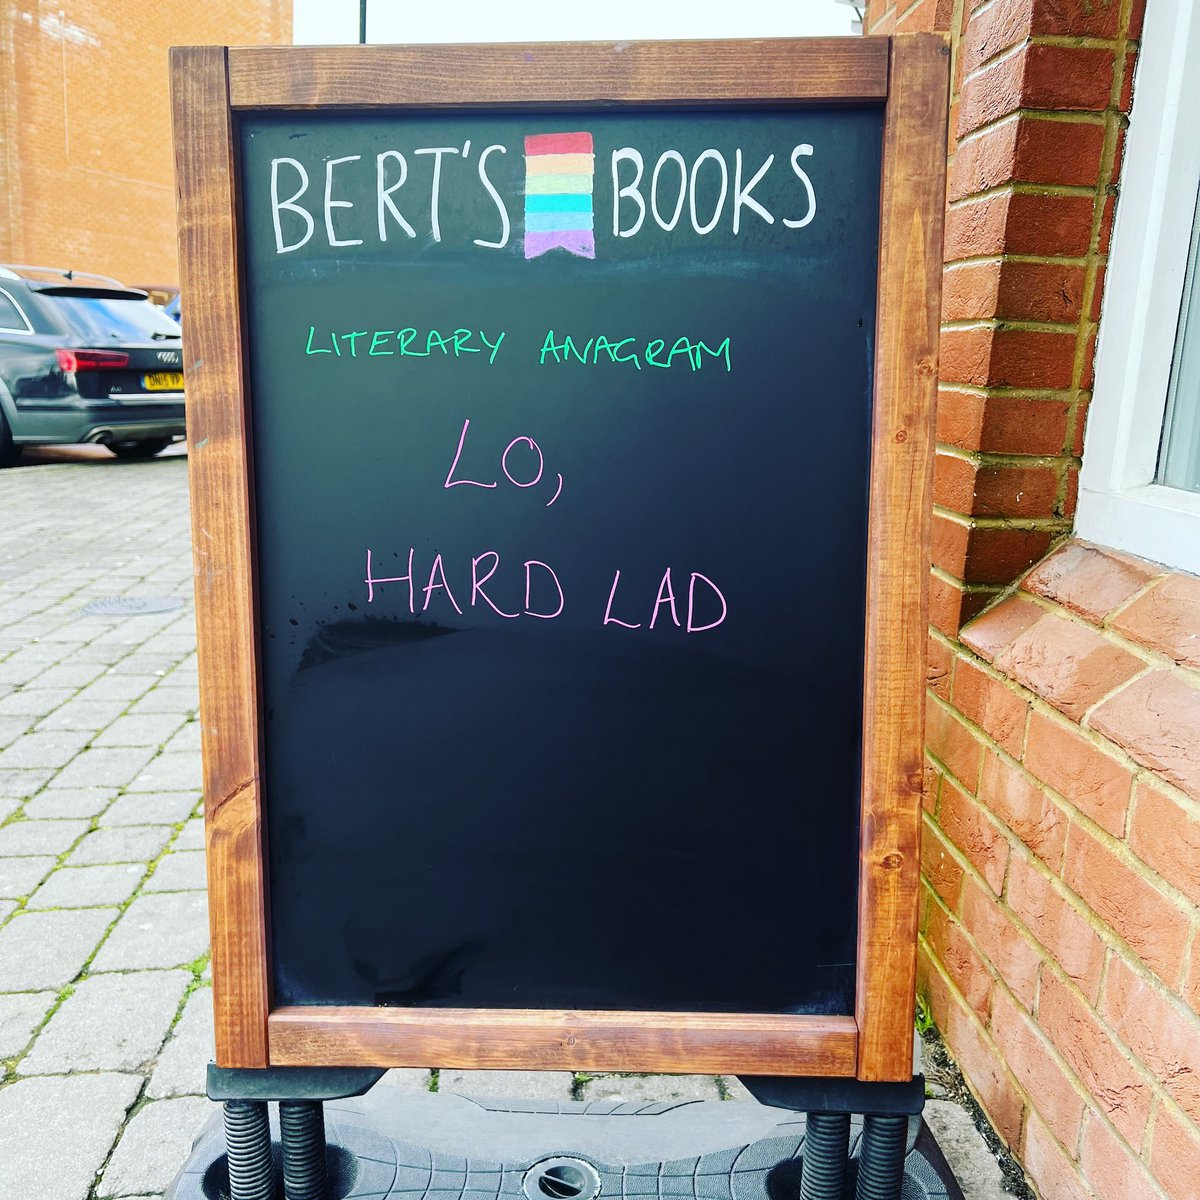 BERT'S BOOKS
LITERARY ANAGRAM
LO,
HARD LAD